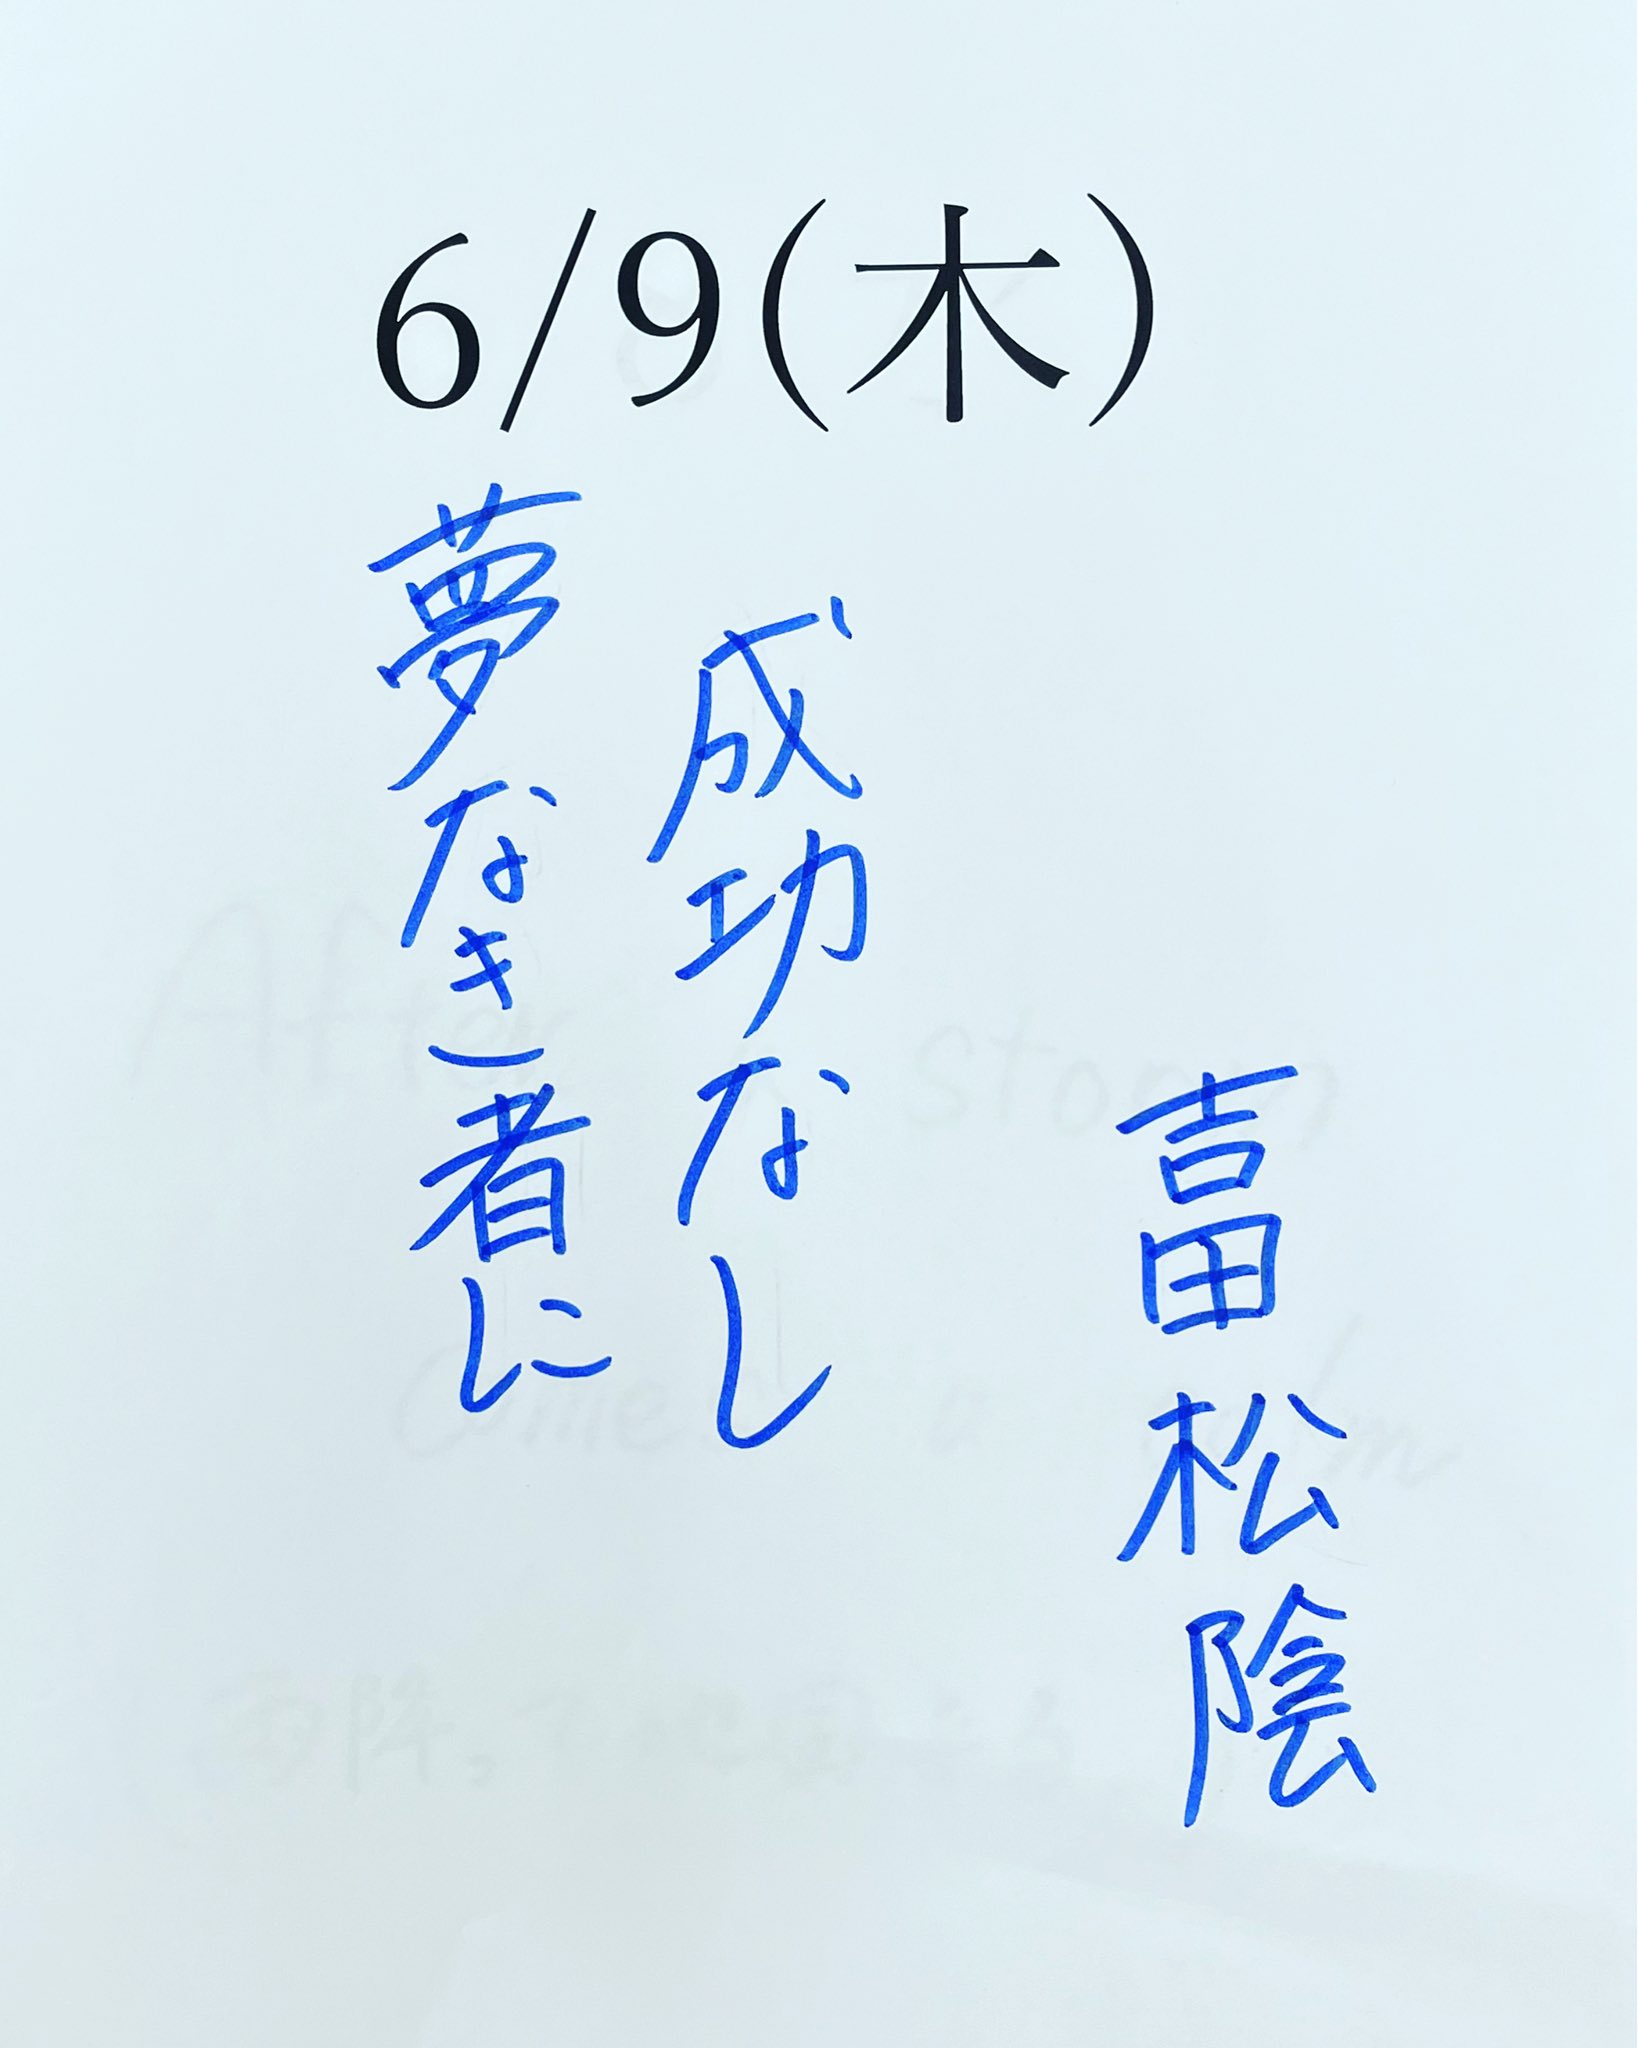 6/9(木)
夢なき者に
成功なし
吉田松陰